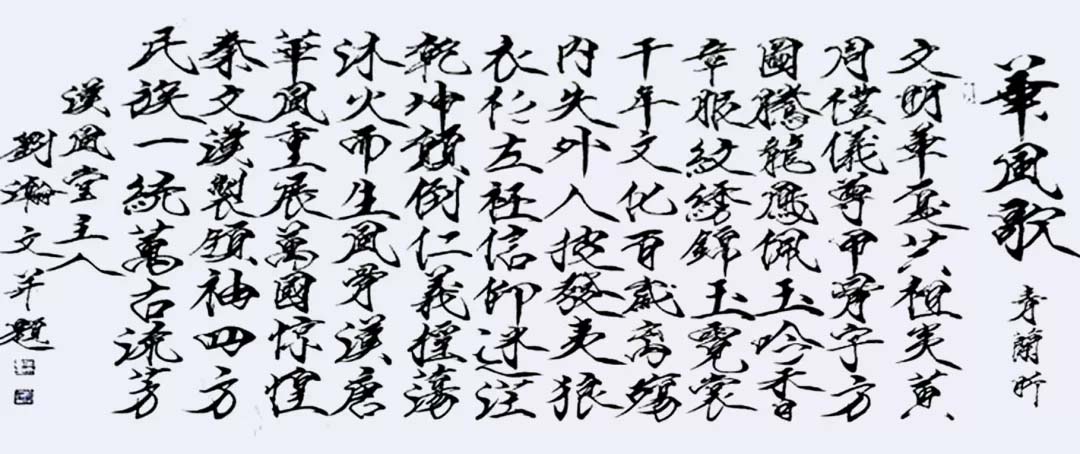 華風歌
寿蘭昕
文明華夏共祖炎黄
周禮儀尊甲骨字方
圖騰龍鳳佩玉吟香
章服紋綉錦玉霓裳
千年文化百歲离殤
内失外入披發夷狼
衣衫左衽信仰迷茫
乾坤顛倒仁義摇蕩
沐火而生風骨漢唐
華風重展萬國惊惶
秦文漢製領袖四方
民族一統萬古流芳
漢風堂主人
劉瀚文并題